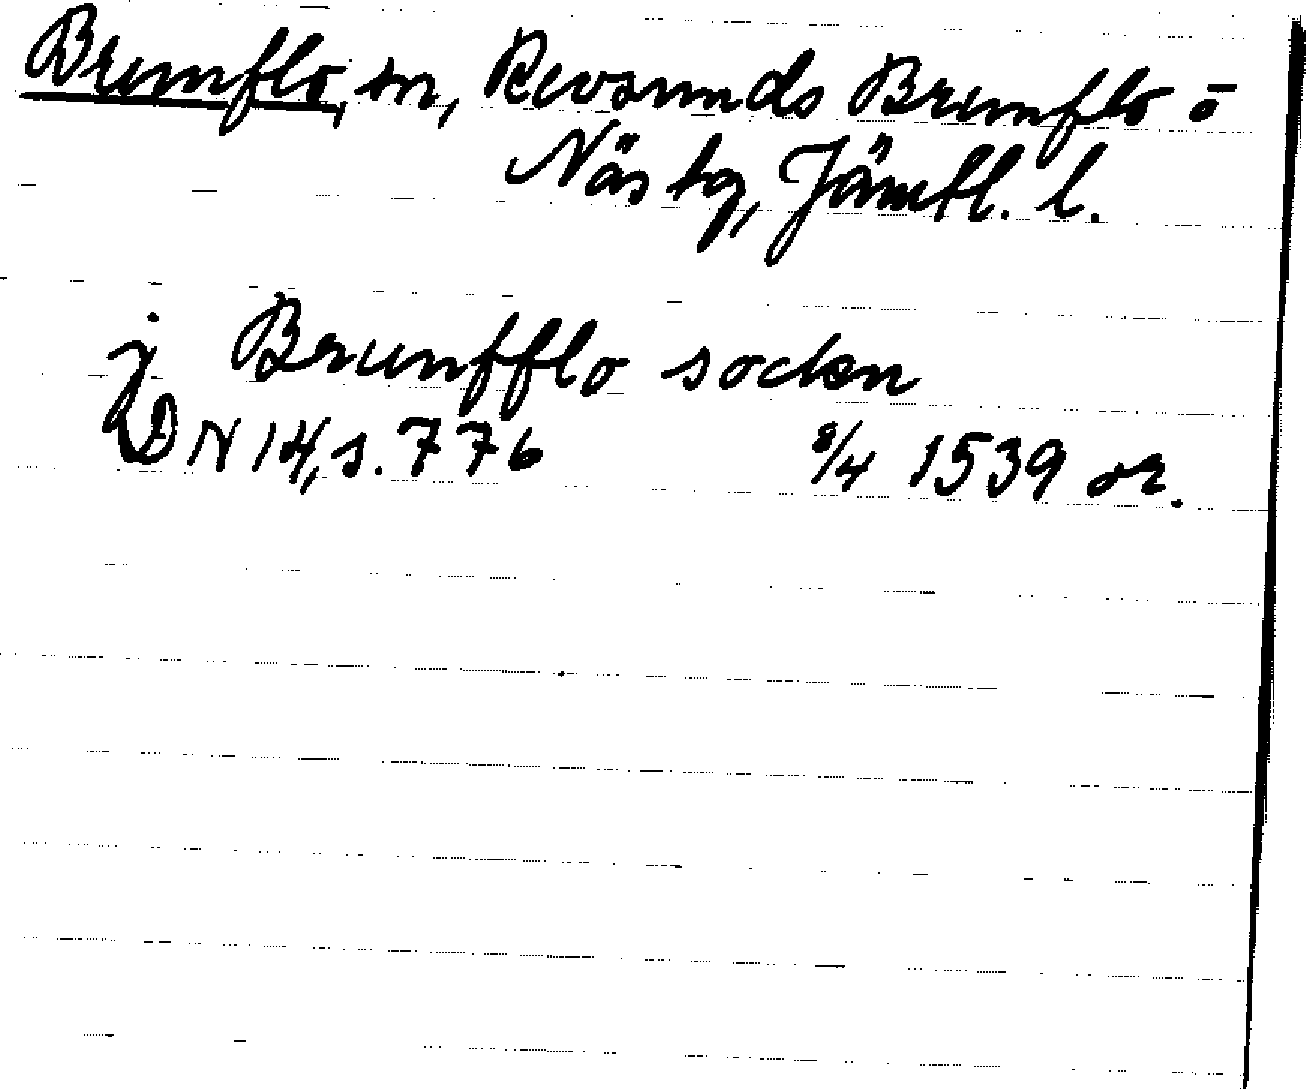 Brunflo, sn, Revsunds Brunflo o
Näs tg, Jämtl. l.
j Brunfflo sockn
DN 14, s. 776 8/4 1539 or.